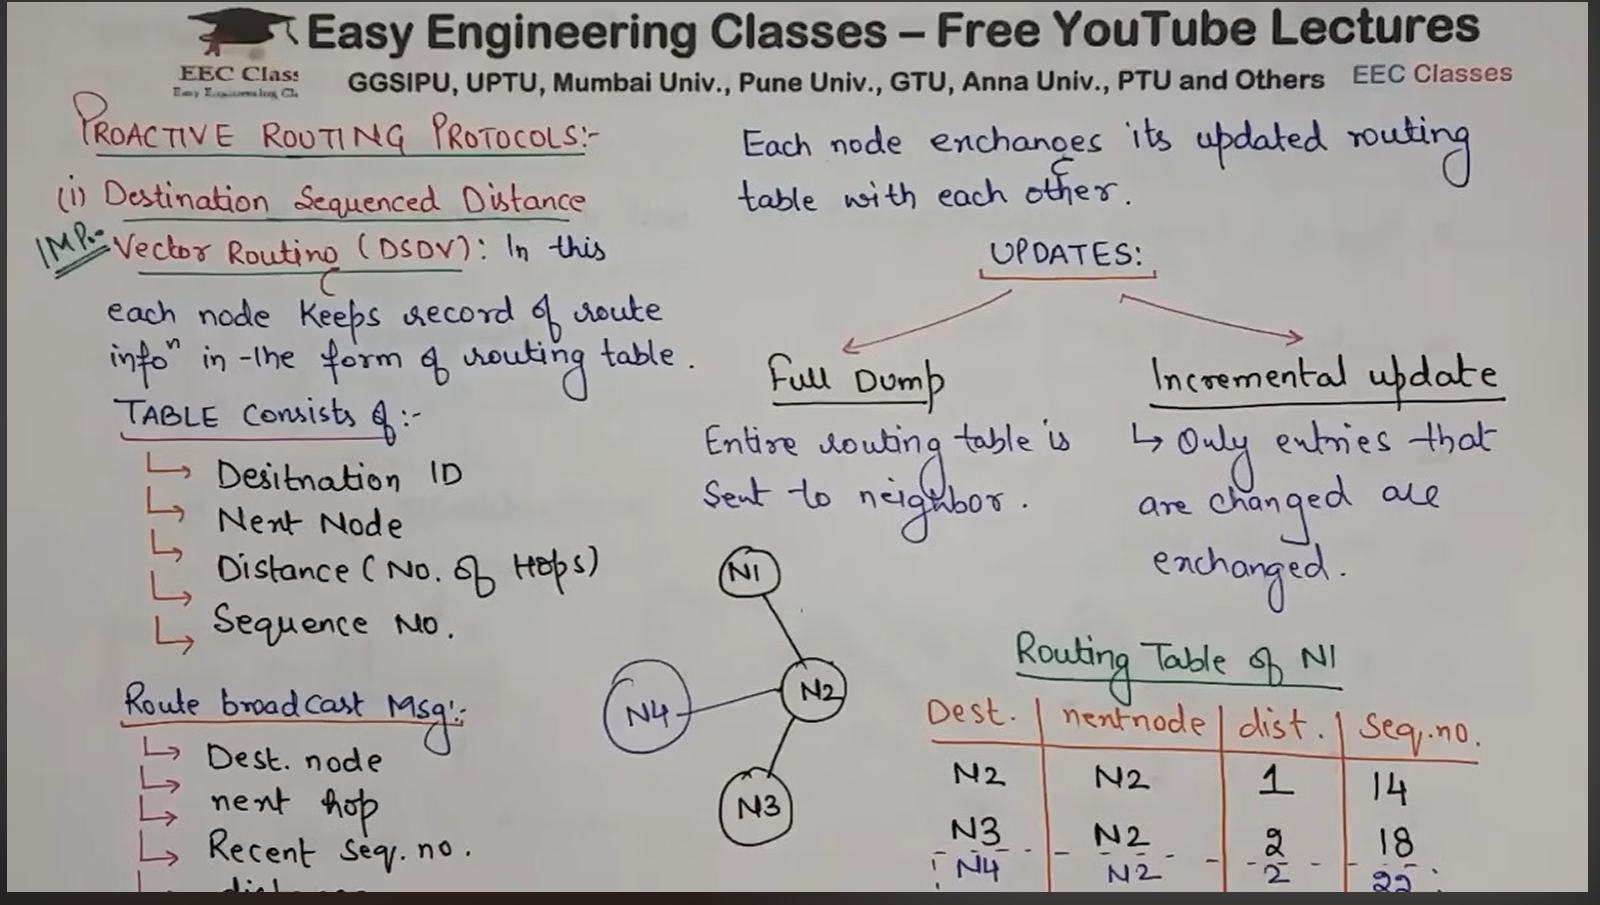 Easy Engineering Classes – Free YouTube Lectures
EEC Class
GGSIPU, UPTU, Mumbai Univ., Pune Univ., GTU, Anna Univ., PTU and Others
EEC Classes
PROACTIVE ROUTING PROTOCOLS:-
(i) Destination Sequenced Distance
IMP.
Vector Routing (DSDV): In this
each node keeps record of route
infoⁿ in the form of routing table.
TABLE Consists of:-
Desitnation ID
Next Node
Distance (No. of Hops)
Sequence No.
Route broadcast Msg:-
Dest. node
next hop
Recent seq. no.
distance
Each node exchanges its updated routing
table with each other.
UPDATES:
Full Dump
Entire routing table is
sent to neighbor.
Incremental update
Only entries that
are changed are
exchanged.
N1
N2
N4
N3
Routing Table of N1
Dest. nextnode dist. Seq.no.
N2 N2 1 14
N3 N2 2 18
N4 N2 2 22